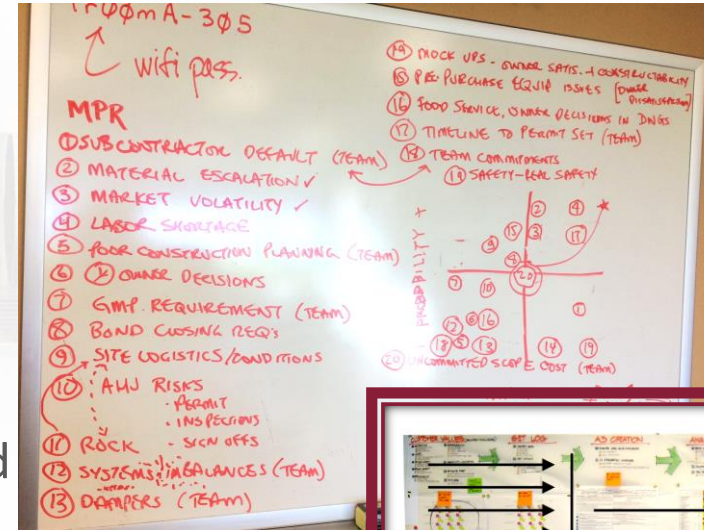 wifi pass.
MPR
① SUBCONTRACTOR DEFAULT (TEAM)
② MATERIAL ESCALATION ✓
③ MARKET VOLATILITY ✓
④ LABOR SHORTAGE
⑤ POOR CONSTRUCTION PLANNING (TEAM)
⑥ OWNER DECISIONS
⑦ GMP. REQUIREMENT (TEAM)
⑧ BOND CLOSING REQ'S
⑨ SITE LOGISTICS/CONDITIONS
⑩ AHJ RISKS
· PERMIT
· INSPECTIONS
· SIGN OFFS
⑪ ROCK
⑫ SYSTEMS IMBALANCES (TEAM)
⑬ DAMPERS (TEAM)
⑭ MOCK UPS - OWNER SATIS. + CONSTRUCTABILITY
⑮ PRE PURCHASE EQUIP ISSUES [OWNER
⑯ FOOD SERVICE, OWNER DECISIONS IN DWGS
⑰ TIMELINE TO PERMIT SET (TEAM)
⑱ TEAM COMMITMENTS
⑲ SAFETY-REAL SAFETY
- PROBABILITY +
② ④
⑮ ③ ⑰
⑨
⑧
⑳
⑦ ⑩
①
⑫ ⑥ ⑯
⑱ ⑤ ⑬ ⑭ ⑲
⑳ UNCOMMITTED SCOPE COST (TEAM)
d
GET LOG
A3 CREATION